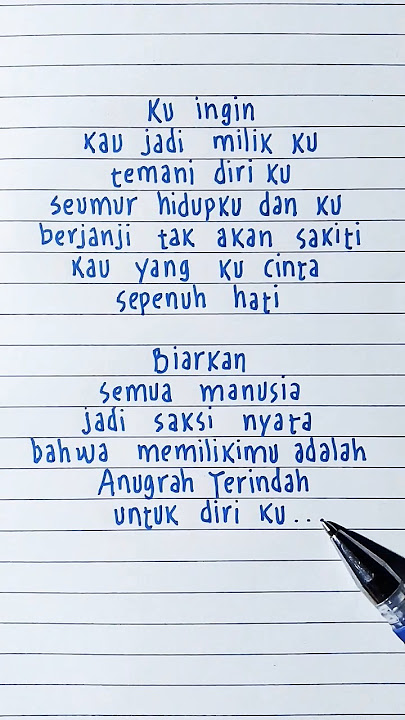 Ku ingin
Kau jadi milik Ku
temani diri Ku
seumur hidupku dan Ku
berjanji tak akan sakiti
Kau yang Ku cinta
sepenuh hati
Biarkan
semua manusia
jadi saksi nyata
bahwa memilikimu adalah
Anugrah Terindah
untuk diri Ku...